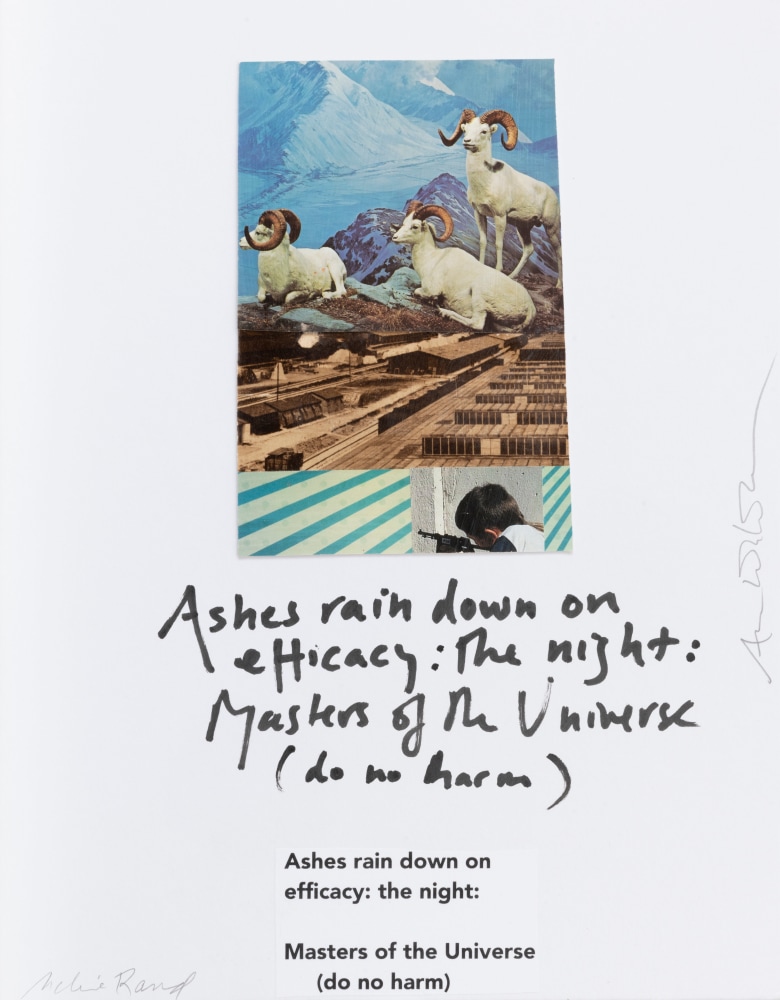 Ashes rain down on
efficacy: the night:
Masters of the Universe
(do no harm)
Ashes rain down on
efficacy: the night:
Masters of the Universe
(do no harm)
Archie Rand